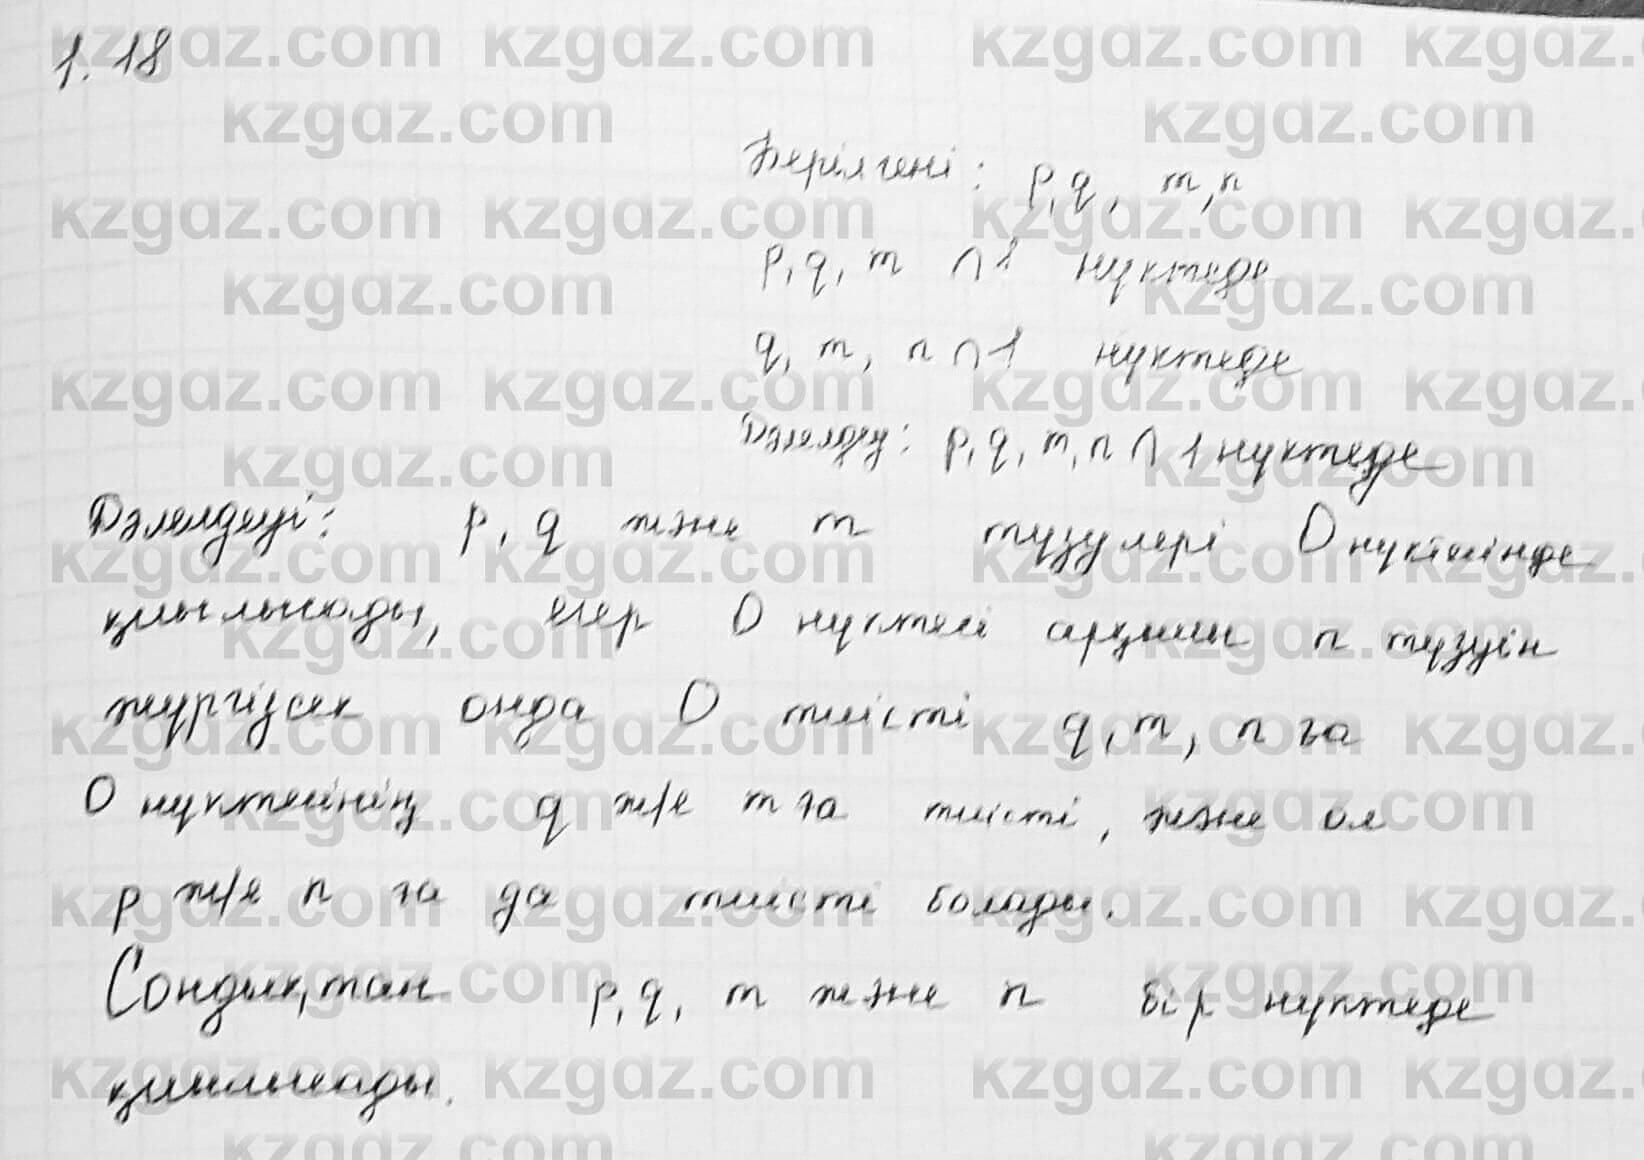 1.18
Берілгені: p,q, m,n
p,q,m ∩ 1 нүктеде
q, m, n ∩ 1 нүктеде
Дәлелдеу: p,q,m,n ∩ 1 нүктеде
Дәлелдеуі: p, q және m түзулері O нүктесінде
қиылысады, егер O нүктесі арқылы n түзуін
жүргізсек онда O тиісті q,m, n ға
O нүктесінің q ж/е m ға тиісті, және ол
p ж/е n ға да тиісті болады.
Сондықтан p,q, m және n бір нүктеде
қиылысады.
kzgaz.com